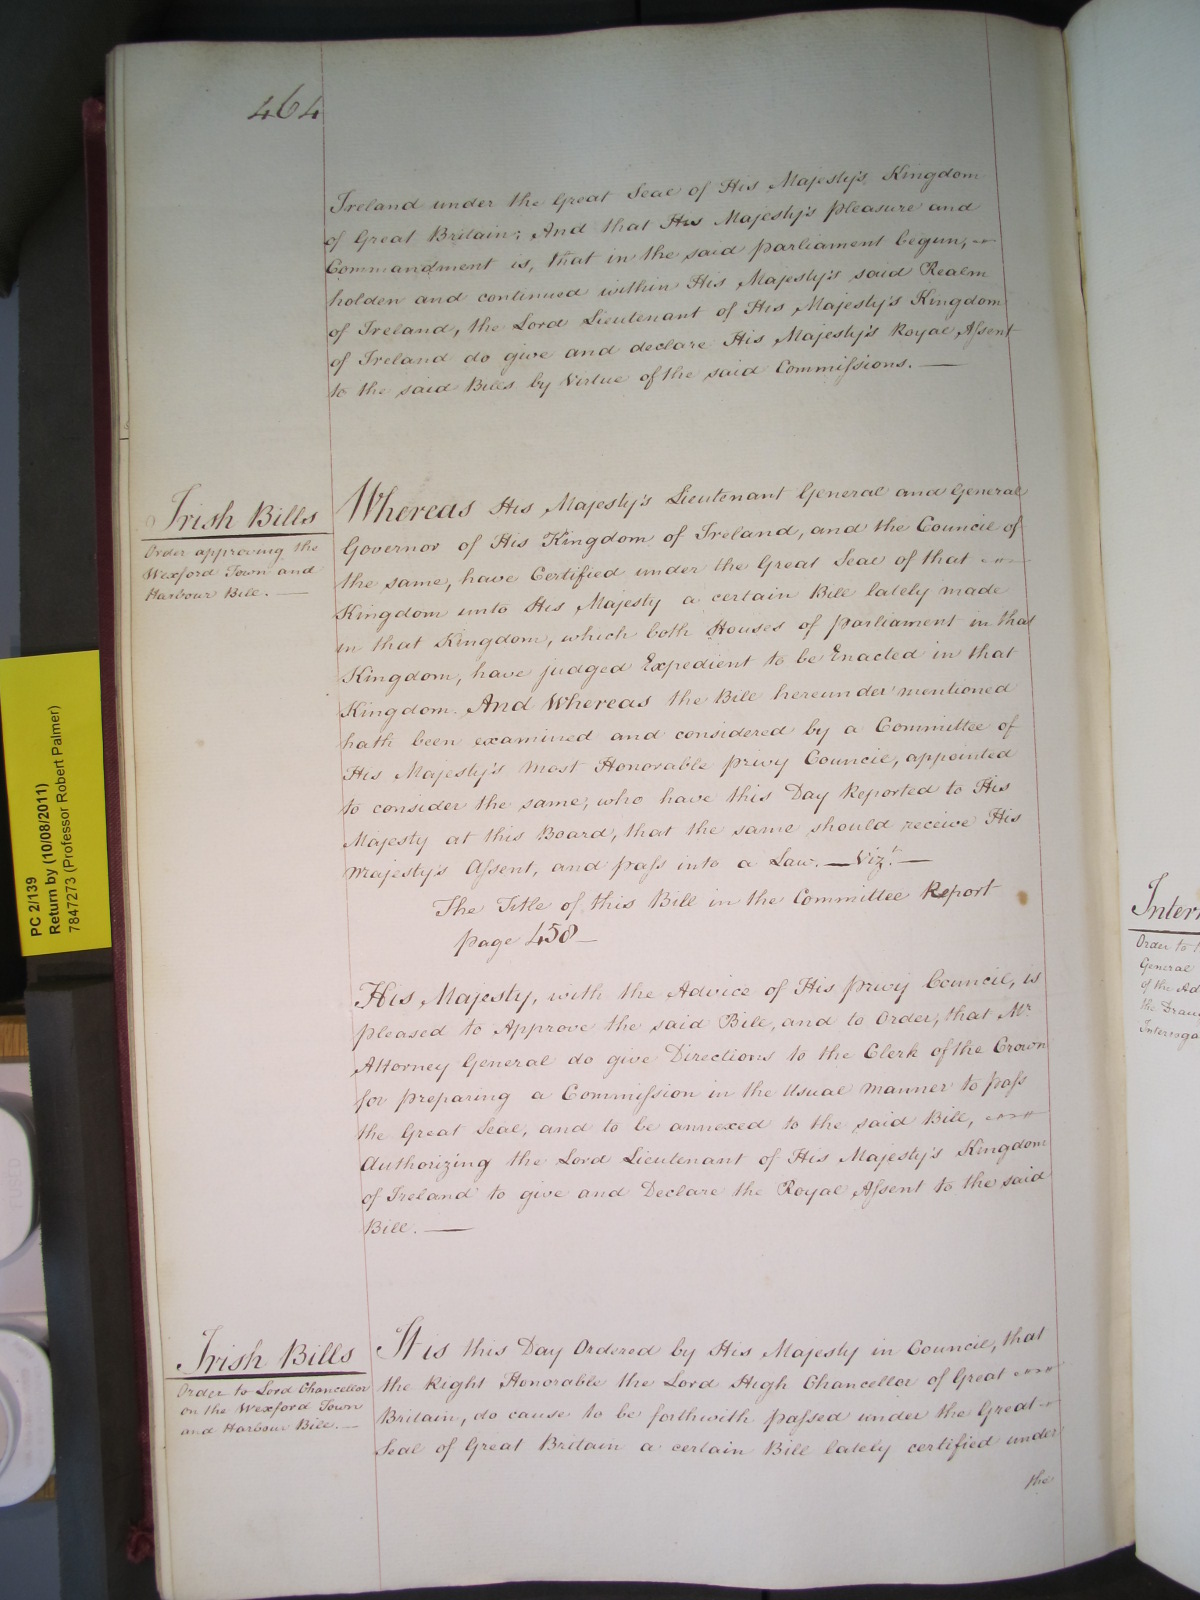 464
Ireland under the Great Seal of His Majesty's Kingdom
of Great Britain; And that His Majesty's pleasure and
Commandment is, that in the said parliament begun,
holden and continued within His Majesty's said Realm
of Ireland, the Lord Lieutenant of His Majesty's Kingdom
of Ireland do give and declare His Majesty's Royal Assent
to the said Bills by Virtue of the said Commissions. —
Irish Bills
Order approving the
Wexford Town and
Harbour Bill. —
Whereas His Majesty's Lieutenant General and General
Governor of His Kingdom of Ireland, and the Council of
the same, have Certified under the Great Seal of that
Kingdom unto His Majesty a certain Bill lately made
in that Kingdom, which both Houses of parliament in that
Kingdom, have judged Expedient to be Enacted in that
Kingdom. And Whereas the Bill hereunder mentioned
hath been examined and considered by a Committee of
His Majesty's most Honorable privy Council, appointed
to consider the same, who have this Day Reported to His
Majesty at this Board, that the same should receive His
Majesty's Assent, and pass into a Law. — Vizt. —
The Title of this Bill in the Committee Report
page 458 —
His Majesty, with the Advice of His privy Council, is
pleased to Approve the said Bill, and to Order, that Mr.
Attorney General do give Directions to the Clerk of the Crown
for preparing a Commission in the Usual manner to pass
the Great Seal, and to be annexed to the said Bill,
Authorizing the Lord Lieutenant of His Majesty's Kingdom
of Ireland to give and Declare the Royal Assent to the said
Bill. —
Irish Bills
Order to Lord Chancellor
on the Wexford Town
and Harbour Bill. —
It is this Day Ordered by His Majesty in Council, that
the Right Honorable the Lord High Chancellor of Great
Britain, do cause to be forthwith passed under the Great
Seal of Great Britain a certain Bill lately certified under
the
PC 2/139
Return by (10/08/2011)
7847273 (Professor Robert Palmer)
Order to
General
of the Ad
the Drau
Interroga